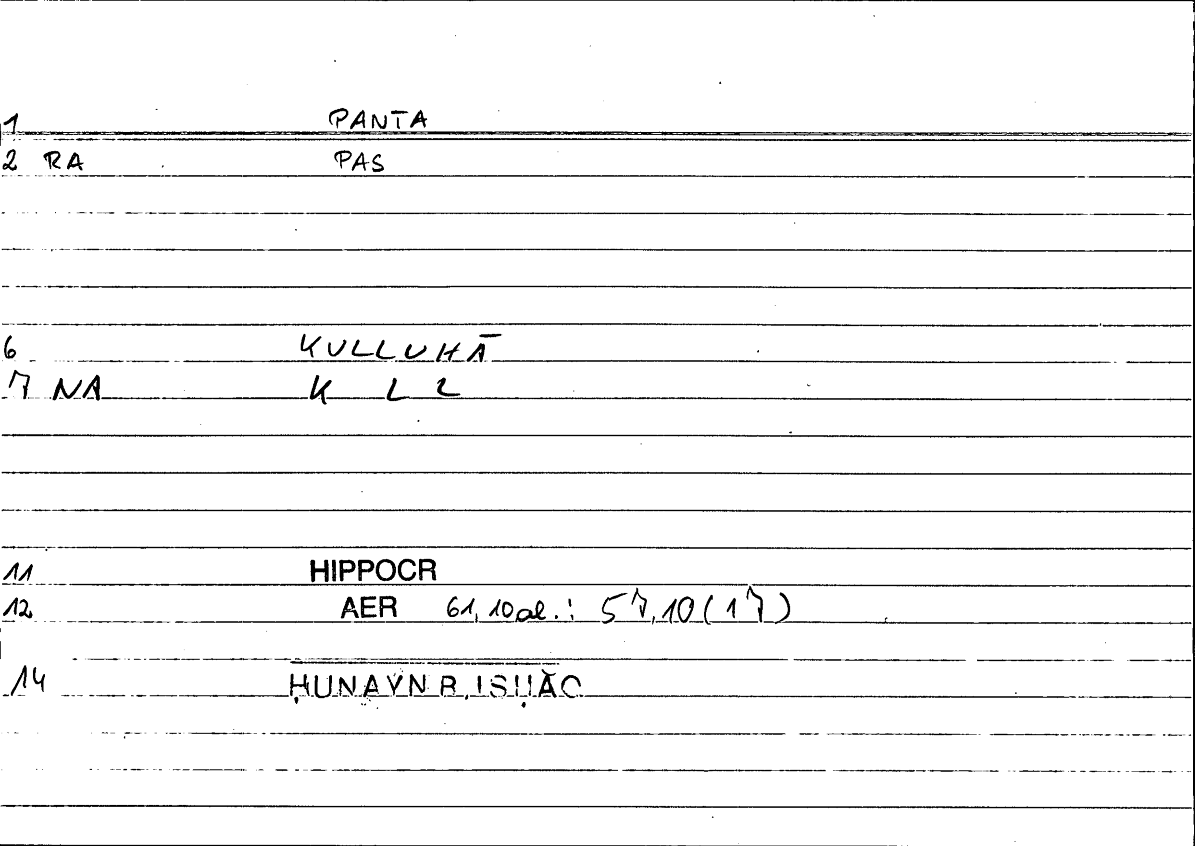 1 PANTA
2 RA PAS
6 KULLUHĀ
7 NA K L L
11 HIPPOCR
12 AER 61,10 al.: 57,10(17)
14 ḤUNAYN B. ISḤĀQ